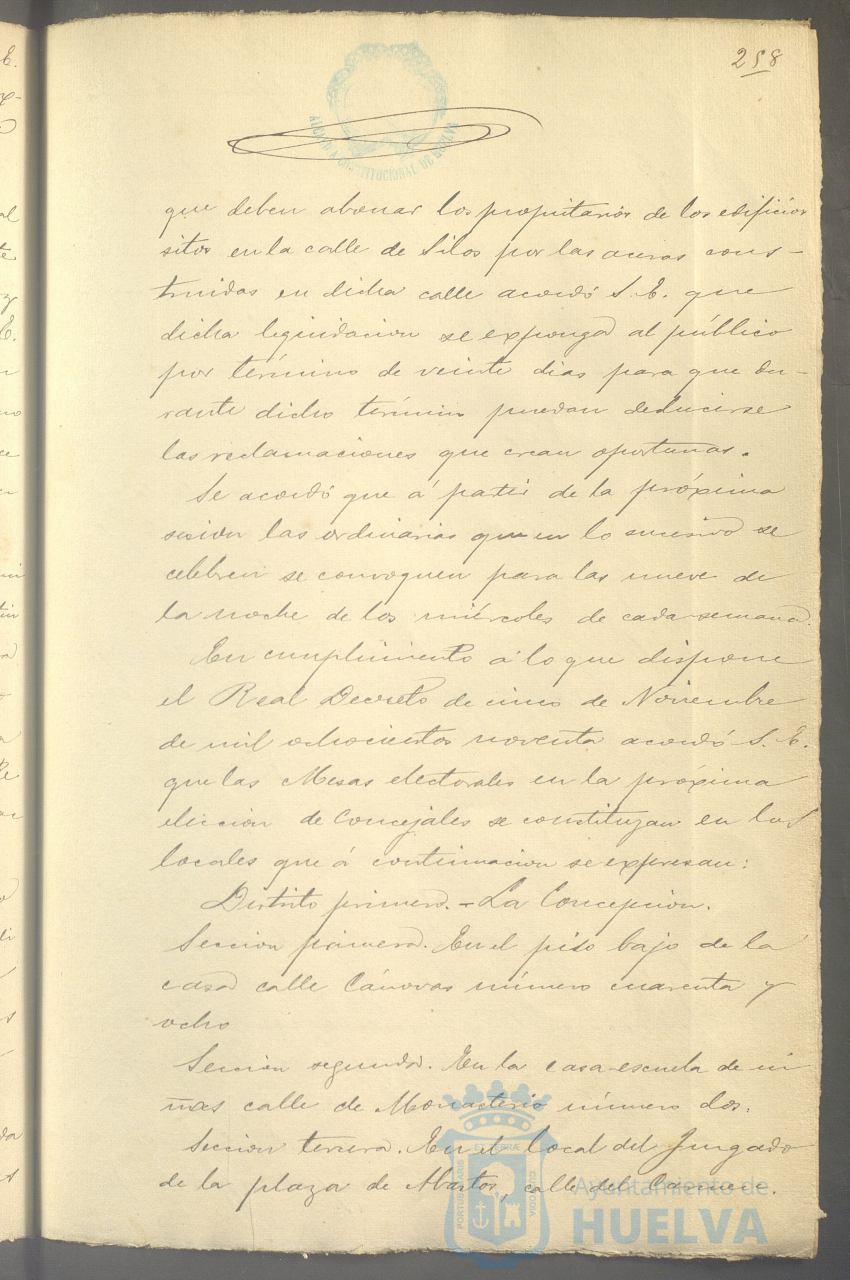 258
ALCALDIA CONSTITUCIONAL DE HUELVA
que deben abonar los propietarios de los edificios
sitos en la calle de Silos por las aceras cons-
truidas en dicha calle acordó S. E. que
dicha liquidacion se exponga al público
por término de veinte dias para que du-
rante dicho término puedan deducirse
las reclamaciones que crean oportunas.
Se acordó que á partir de la próxima
sesion las ordinarias que en lo sucesivo se
celebren se convoquen para las nueve de
la noche de los miércoles de cada semana.
En cumplimiento á lo que dispone
el Real Decreto de cinco de Noviembre
de mil ochocientos noventa acordó S. E.
que las Mesas electorales en la próxima
eleccion de Concejales se constituyan en los
locales que á continuacion se expresan:
Distrito primero. = La Concepcion.
Seccion primera. En el piso bajo de la
casa calle Cánovas número cuarenta y
ocho
Seccion segunda. En la casa-escuela de ni
ñas calle de Monasterio número dos.
Seccion tercera. En el local del Juzgado
de la plaza de Martos, calle del Carmen.
Ayuntamiento de
HUELVA